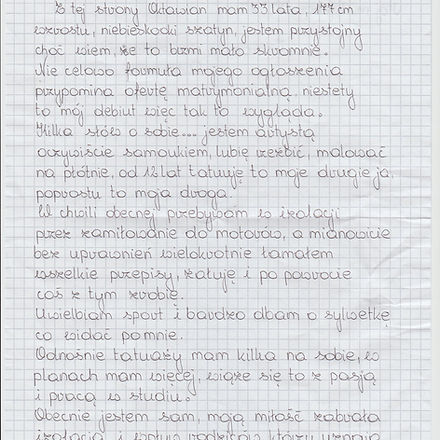 Z tej strony Oktawian mam 33 lata, 177 cm
wzrostu, niebieskooki szatyn, jestem przystojny
choć wiem, że to brzmi mało skromnie.
Nie celowo formuła mojego ogłoszenia
przypomina ofertę matrymonialną, niestety
to mój debiut więc tak to wygląda.
Kilka słów o sobie... jestem artystą
oczywiście samoukiem, lubię rzeźbić, malować
na płótnie, od 12 lat tatuuję to moje drugie ja,
poprostu to moja droga.
W chwili obecnej przebywam w izolacji
przez zamiłowanie do motorów, a mianowicie
bez uprawnień wielokrotnie łamałem
wszelkie przepisy, żałuję i po powrocie
coś z tym zrobię.
Uwielbiam sport i bardzo dbam o sylwetkę
co widać po mnie.
Odnośnie tatuaży mam kilka na sobie, w
planach mam więcej, wiąże się to z pasją
i pracą w studiu.
Obecnie jestem sam, moją miłość zabrała
izolacja i wpływ rodziców którzy